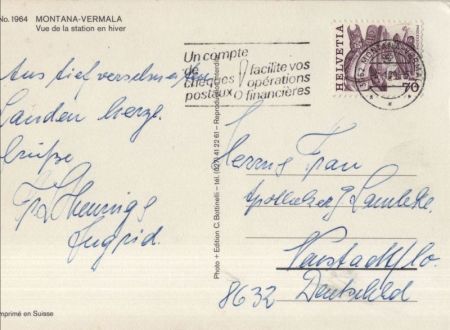 No. 1964 MONTANA-VERMALA
Vue de la station en hiver
Un compte
de
chèques
postaux
facilite vos
opérations
financières
HELVETIA
70
3962 MONTANA-VERMALA
Aus tief verschneiten
Landen herzl.
Grüße
Hennigs
Ingrid.
Photo + Edition C. Bottinelli – tél. (027) 41 22 61 – Reproduction interdite
Herrn u. Frau
Apotheker J. Lambeke
Neustadt/Co.
8632 Deutschld
Imprimé en Suisse